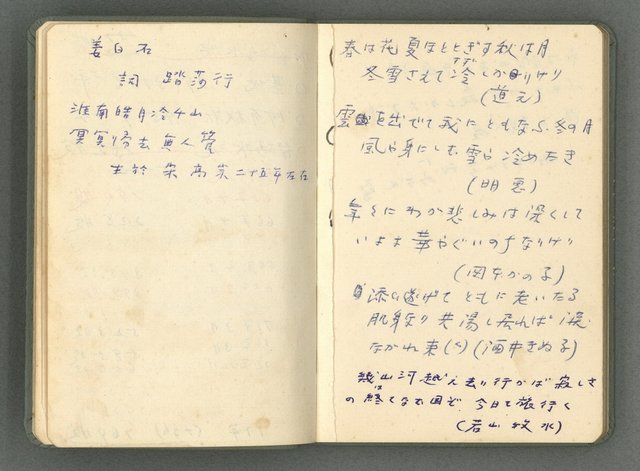 姜白石
詞 踏莎行
淮南皓月冷千山
冥冥歸去無人管
生於 宋高宗二十五年左右
春は花 夏ほととぎす 秋は月
冬雪さえて冷しかりけり
すず
(道元)
雲を出でて我にともなふ冬の月
風や身にしむ雪や冷めたき
(明恵)
年々にわが悲しみは深くして
いよよ華やぐいのちなりけり
(岡本かの子)
添ひ遂げて ともに老いたる
肌身なり 共湯し居れば 涙
ながれ来(く) (酒井きぬ子)
幾山河越え去り行かば寂しさ
の終てなむ国ぞ 今日も旅行く
(若山牧水)